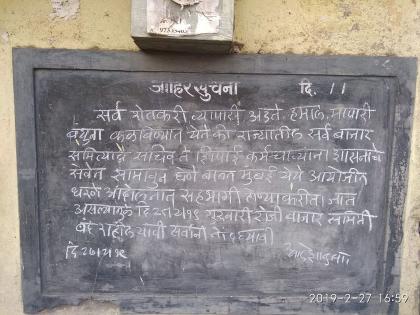 97535402
जाहिर सुचना दि. 11
सर्व शेतकरी व्यापारी अडते, हमाल, मापारी
कळविण्यात येते की राज्यातील सर्व बाजार
समित्याचे सचिव ते शिपाई कर्मचाऱ्यांना शासनाचे
सेवेत सामावुन घेणे बाबत मुंबई येथे आयोजीत
धरणे आंदोलनात सहभागी होण्याकरीता जात
असल्यामुळे दि गुरुवारी रोजी बाजार समिती
बंद राहील याची सर्वांनी नोंद घ्यावी
2019-2-27 16:59